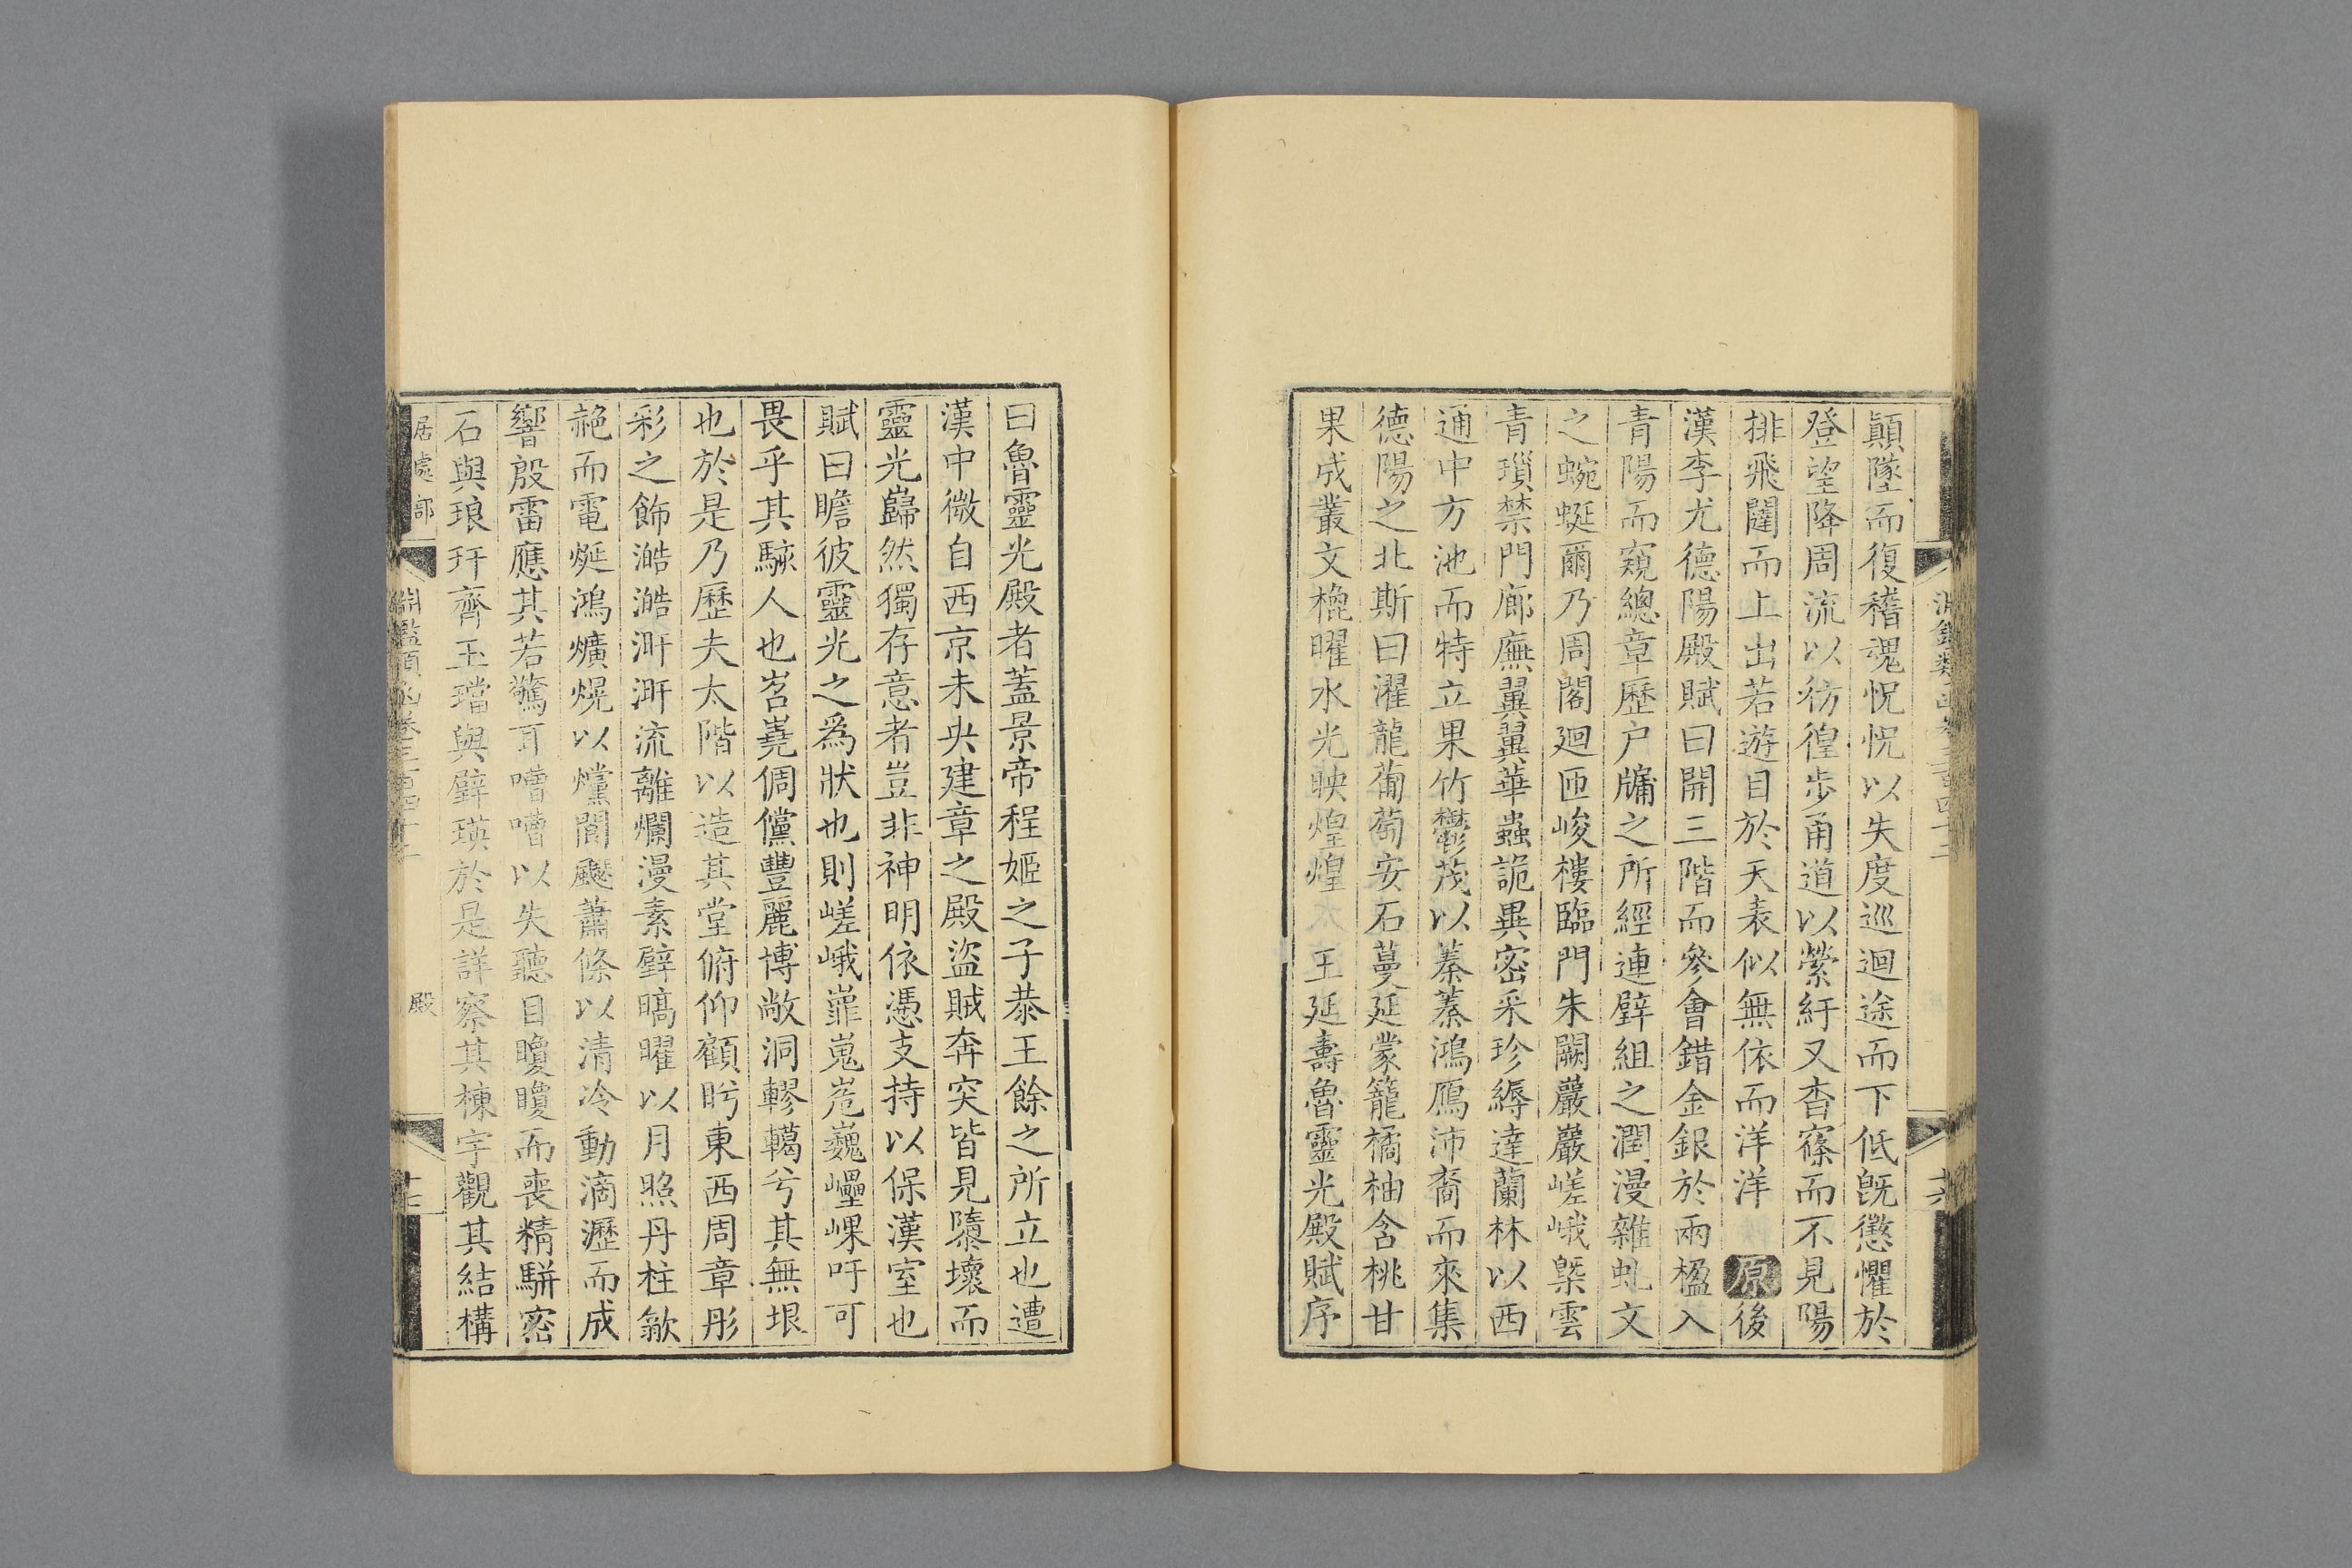 顛墜而復稽魂怳怳以失度巡迴途而下低旣懲懼於
登望降周流以彷徨步甬道以縈紆又杳窱而不見陽
排飛闥而上出若遊目於天表似無依而洋洋 原後
漢李尤德陽殿賦曰開三階而參會錯金銀於兩楹入
青陽而窺總章歷户牖之所經連璧組之潤漫雜虬文
之蜿蜒爾乃周閣迴匝峻樓臨門朱闕巖巖嵯峨槩雲
青瑣禁門廊廡翼翼華蟲詭異密采珍縟達蘭林以西
通中方池而特立果竹鬱茂以蓁蓁鴻鴈沛裔而來集
德陽之北斯曰濯龍葡萄安石蔓延蒙籠橘柚含桃甘
果成叢文櫋曜水光映煌煌 王延壽魯靈光殿賦序
曰魯靈光殿者蓋景帝程姬之子恭王餘之所立也遭
漢中微自西京未央建章之殿盜賊奔突皆見隳壞而
靈光巋然獨存意者豈非神明依憑支持以保漢室也
賦曰瞻彼靈光之爲狀也則嵯峨嶵嵬峞巍㠥嵲吁可
畏乎其駭人也岧嶤倜儻豐麗博敞洞轇轕兮其無垠
也於是乃歷夫太階以造其堂俯仰顧眄東西周章彤
彩之飾澔澔涆涆流離爛漫素壁暠曜以月照丹柱歙
赩而電烻鴻爌熀以爣閬飋蕭條以清冷動滴瀝而成
響殷雷應其若驚耳嘈嘈以失聽目矎矎而喪精駢密
石與琅玕齊玉璫與璧瑛於是詳察其棟宇觀其結構
居處部
淵鑑類函卷三百四十二
殿
十七